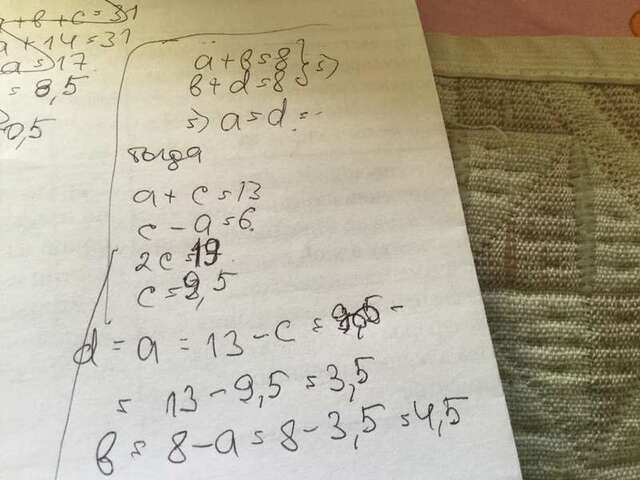 a + в + c = 31
a + 14 = 31
a = 17
= 8,5
0,5
a + в = 8 } =>
в + d = 8
=> a = d =
тогда
a + c = 13
c - a = 6
2c = 19
c = 9,5
d = a = 13 - c =
= 13 - 9,5 = 3,5
в = 8 - a = 8 - 3,5 = 4,5